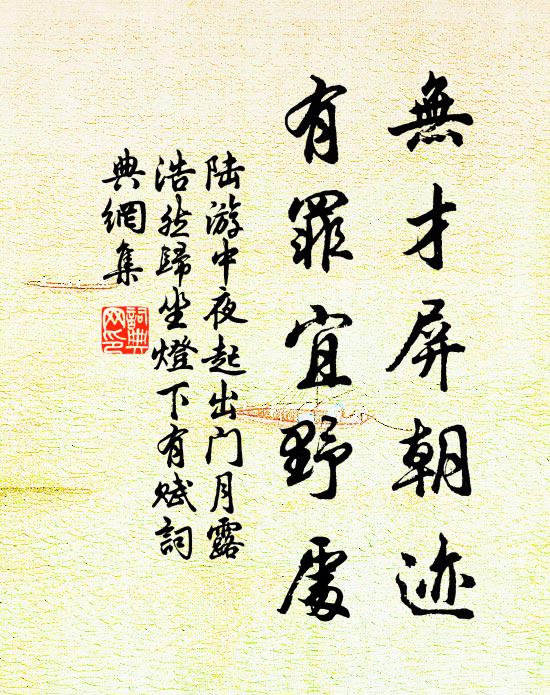 無才屏朝迹
有罪宜野處
陆游中夜起出门月露
浩然歸坐燈下有賦詞
典網集
詞典
网印